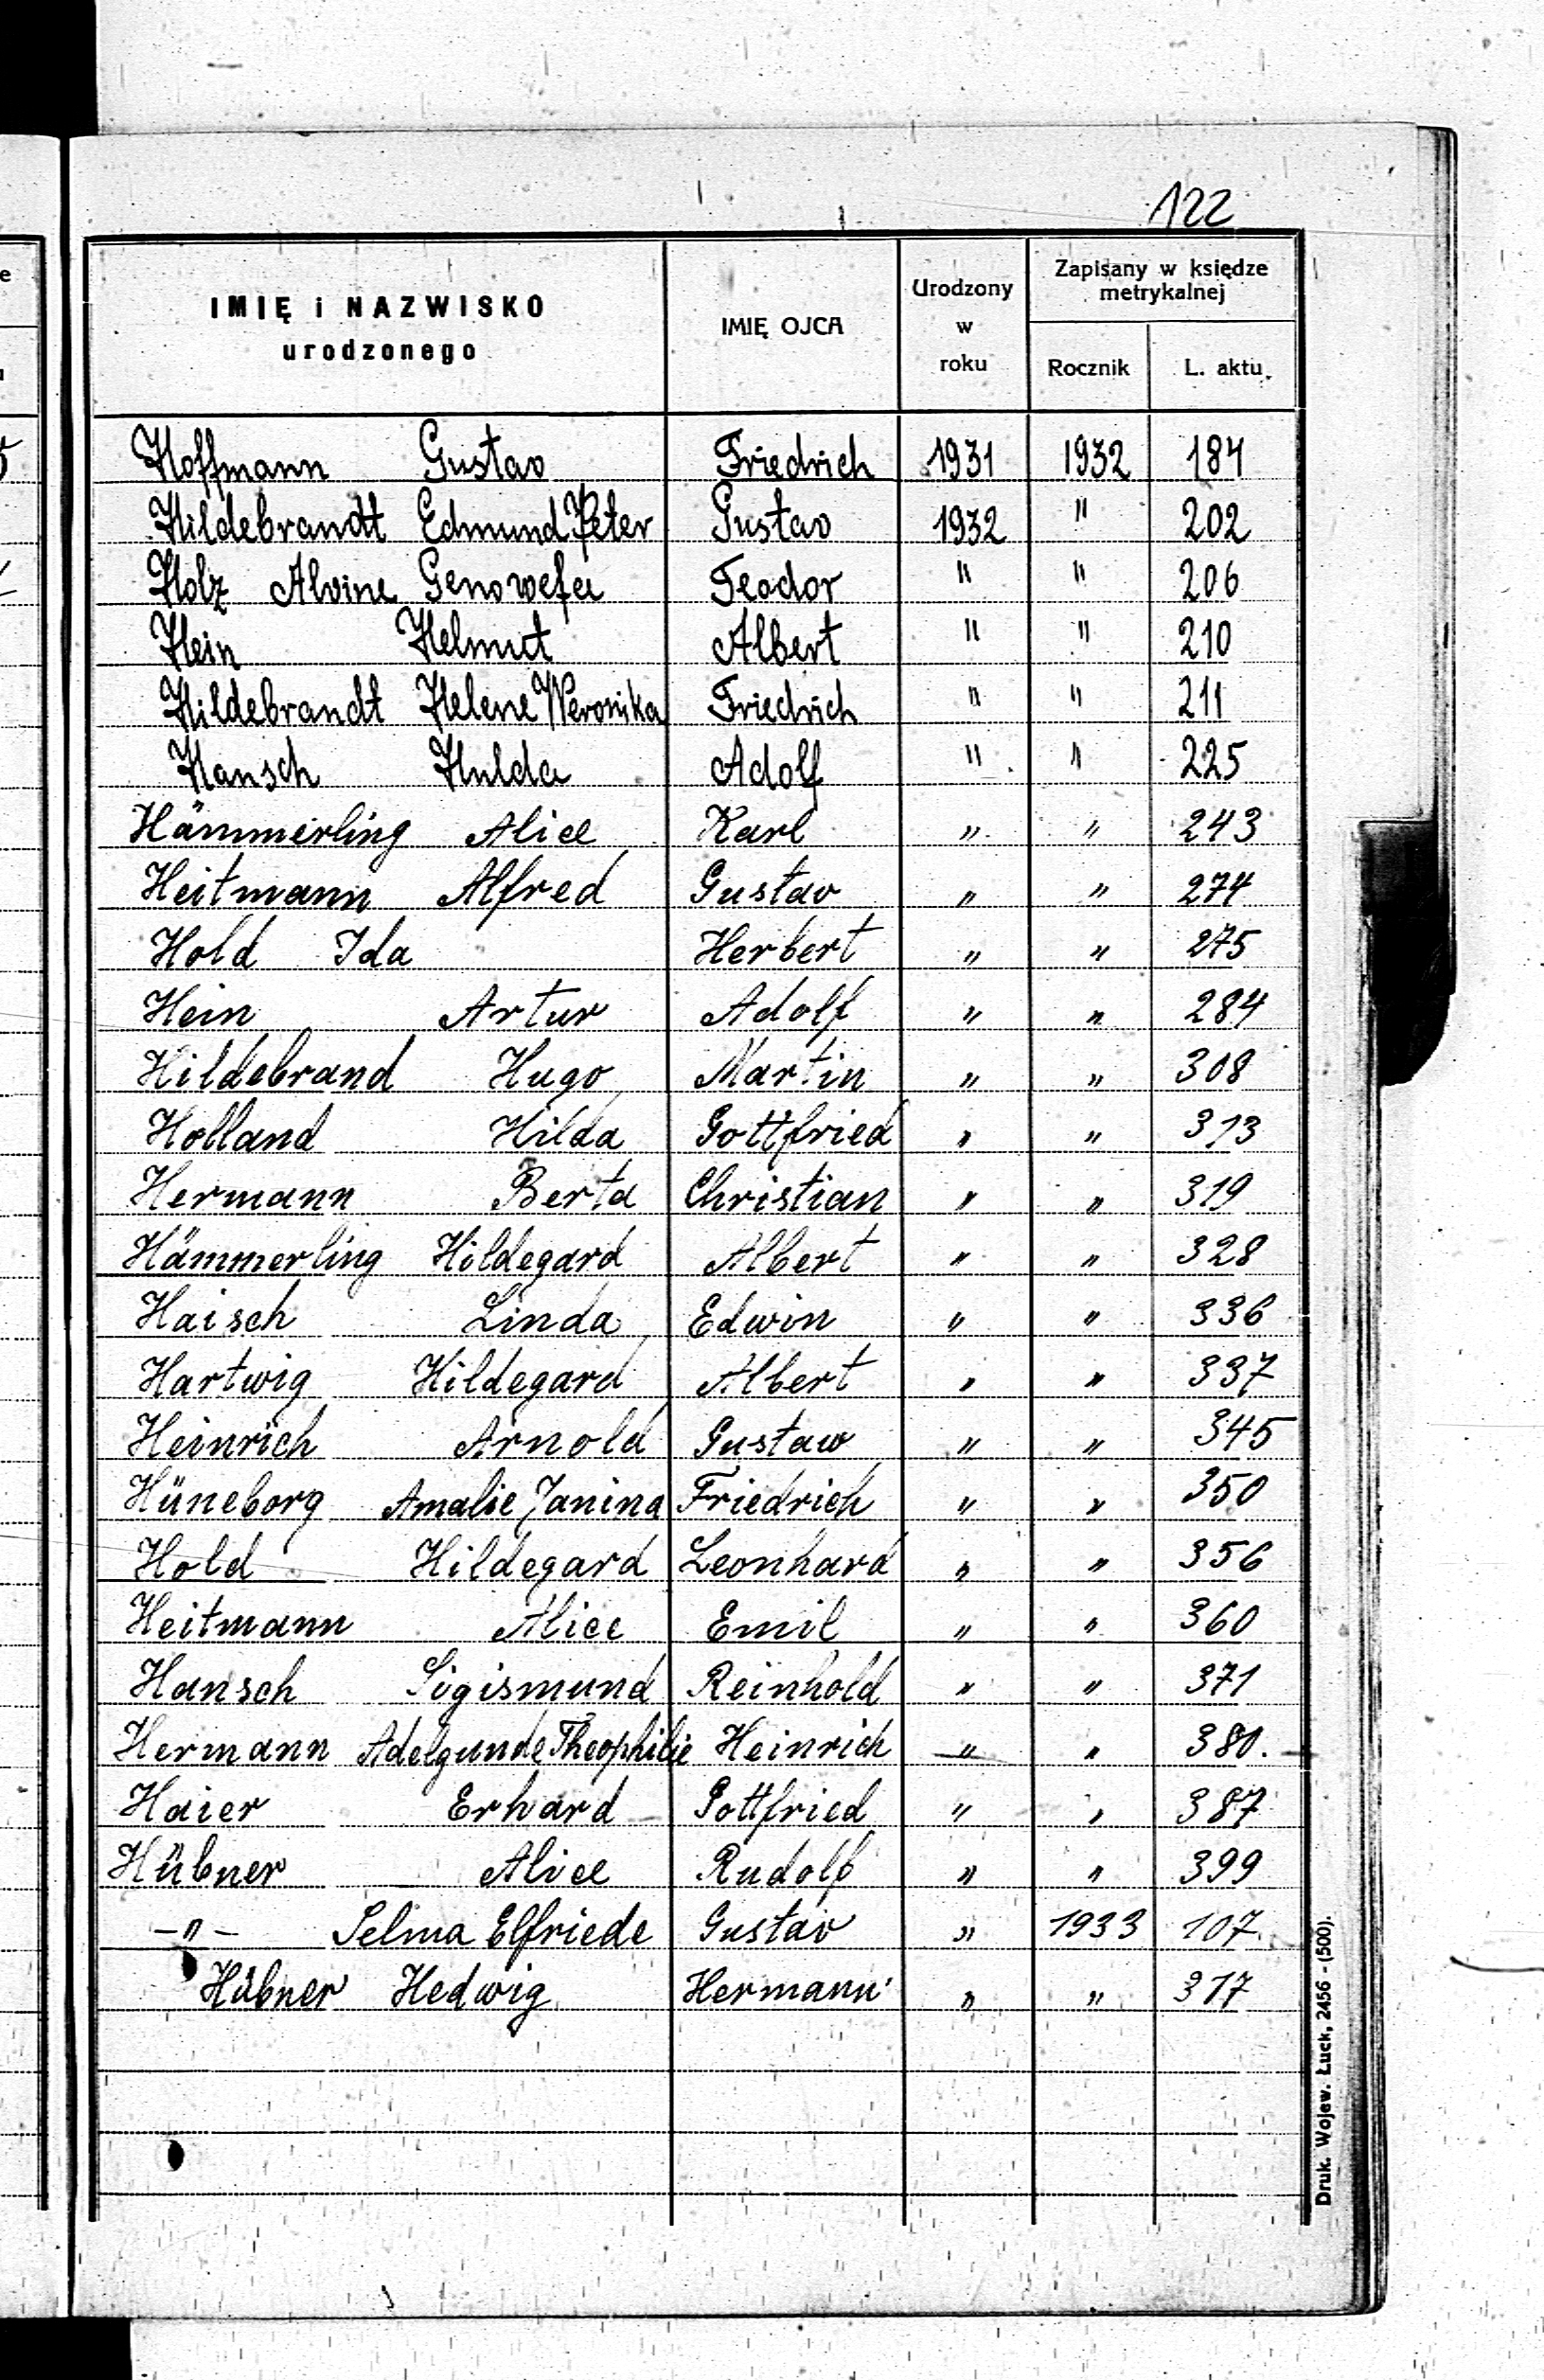 122
IMIĘ i NAZWISKO
urodzonego
IMIĘ OJCA
Urodzony
w
roku
Zapisany w księdze
metrykalnej
Rocznik
L. aktu
Hoffmann Gustav Friedrich 1931 1932 184
Hildebrandt Edmund Peter Gustav 1932 " 202
Holz Alvine Genowefa Teodor " " 206
Hein Helmut Albert " " 210
Hildebrandt Helene Weronika Friedrich " " 211
Hansch Hulda Adolf " " 225
Hämmerling Alice Karl " " 243
Heitmann Alfred Gustav " " 274
Hold Ida Herbert " " 275
Hein Artur Adolf " " 284
Hildebrand Hugo Martin " " 308
Holland Hilda Gottfried " " 313
Hermann Berta Christian " " 319
Hämmerling Hildegard Albert " " 328
Haisch Linda Edwin " " 336
Hartwig Hildegard Albert " " 337
Heinrich Arnold Gustaw " " 345
Hüneborg Amalie Janina Friedrich " " 350
Hold Hildegard Leonhard " " 356
Heitmann Alice Emil " " 360
Hansch Sigismund Reinhold " " 371
Hermann Adelgunde Theophilie Heinrich " " 380.
Haier Erhard Gottfried " " 387
Hübner Alice Rudolf " " 399
-"- Selma Elfriede Gustav " 1933 107
Hübner Hedwig Hermann " " 317
Druk. Wojew. Łuck, 2456 - (500).